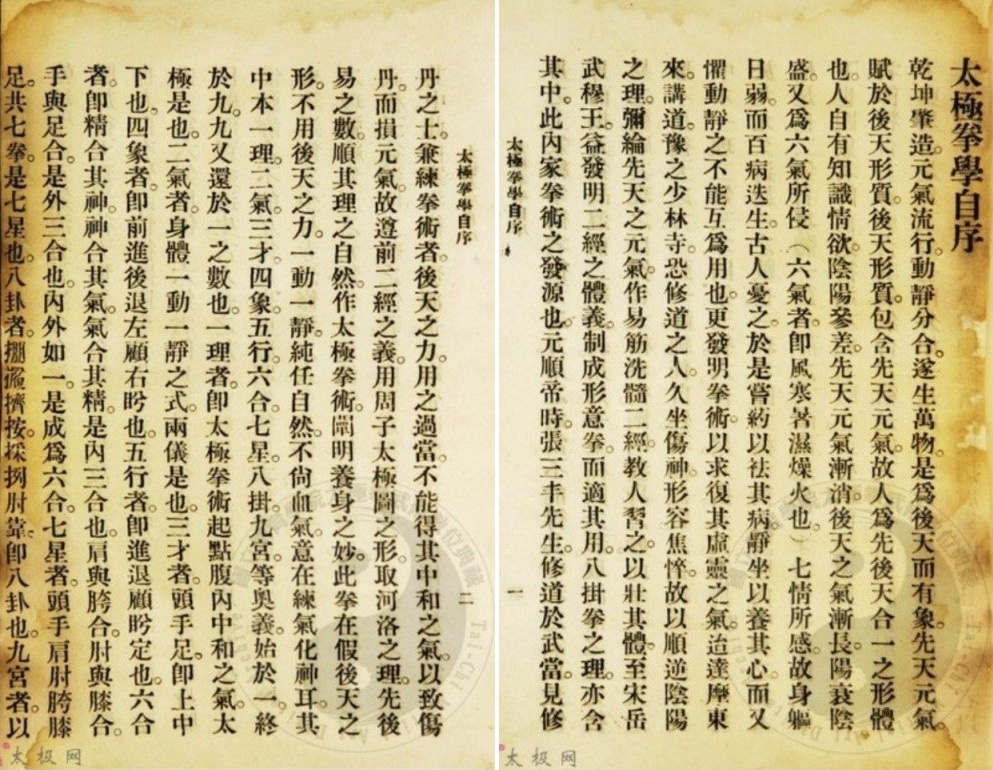 太極拳學自序
乾坤肇造。元氣流行。動靜分合。遂生萬物。是爲後天而有象。先天元氣。
賦於後天形質。後天形質。包含先天元氣。故人爲先後天合一之形體
也。人自有知識情欲。陰陽參差。先天元氣漸消。後天之氣漸長。陽衰陰
盛。又爲六氣所侵（六氣者卽風寒暑濕燥火也）七情所感。故身軀
日弱。而百病迭生。古人憂之。於是嘗藥以祛其病。靜坐以養其心。而又
懼動靜之不能互爲用也。更發明拳術。以求復其虛靈之氣。迨達摩東
來。講道豫之少林寺。恐修道之人。久坐傷神。形容焦悴。故以順逆陰陽
之理。彌綸先天之元氣。作易筋洗髓二經。敎人習之。以壯其體。至宋岳
武穆王。益發明二經之體義。制成形意拳。而適其用。八掛拳之理。亦含
其中。此內家拳術之發源也。元順帝時。張三丰先生。修道於武當。見修
太極拳學自序
一
太極拳學自序
二
丹之士。兼練拳術者。後天之力。用之過當。不能得其中和之氣。以致傷
丹。而損元氣。故遵前二經之義。用周子太極圖之形。取河洛之理。先後
易之數。順其理之自然。作太極拳術。闡明養身之妙。此拳在假後天之
形。不用後天之力。一動一靜。純任自然。不尙血氣。意在練氣化神耳。其
中本一理二氣三才四象五行六合七星八掛九宮等奧義。始於一。終
於九。九又還於一之數也。一理者。卽太極拳術起點腹內中和之氣。太
極是也。二氣者。身體一動一靜之式。兩儀是也。三才者。頭手足。卽上中
下也。四象者。卽前進後退左顧右盼也。五行者。卽進退顧盼定也。六合
者。卽精合其神。神合其氣。氣合其精。是內三合也。肩與胯合。肘與膝合。
手與足合。是外三合也。內外如一。是成爲六合。七星者。頭手肩肘胯膝
足共七拳。是七星也。八卦者。掤擠按採挒肘靠。卽八卦也。九宮者。以
太极网
太极网
Tai-Chi